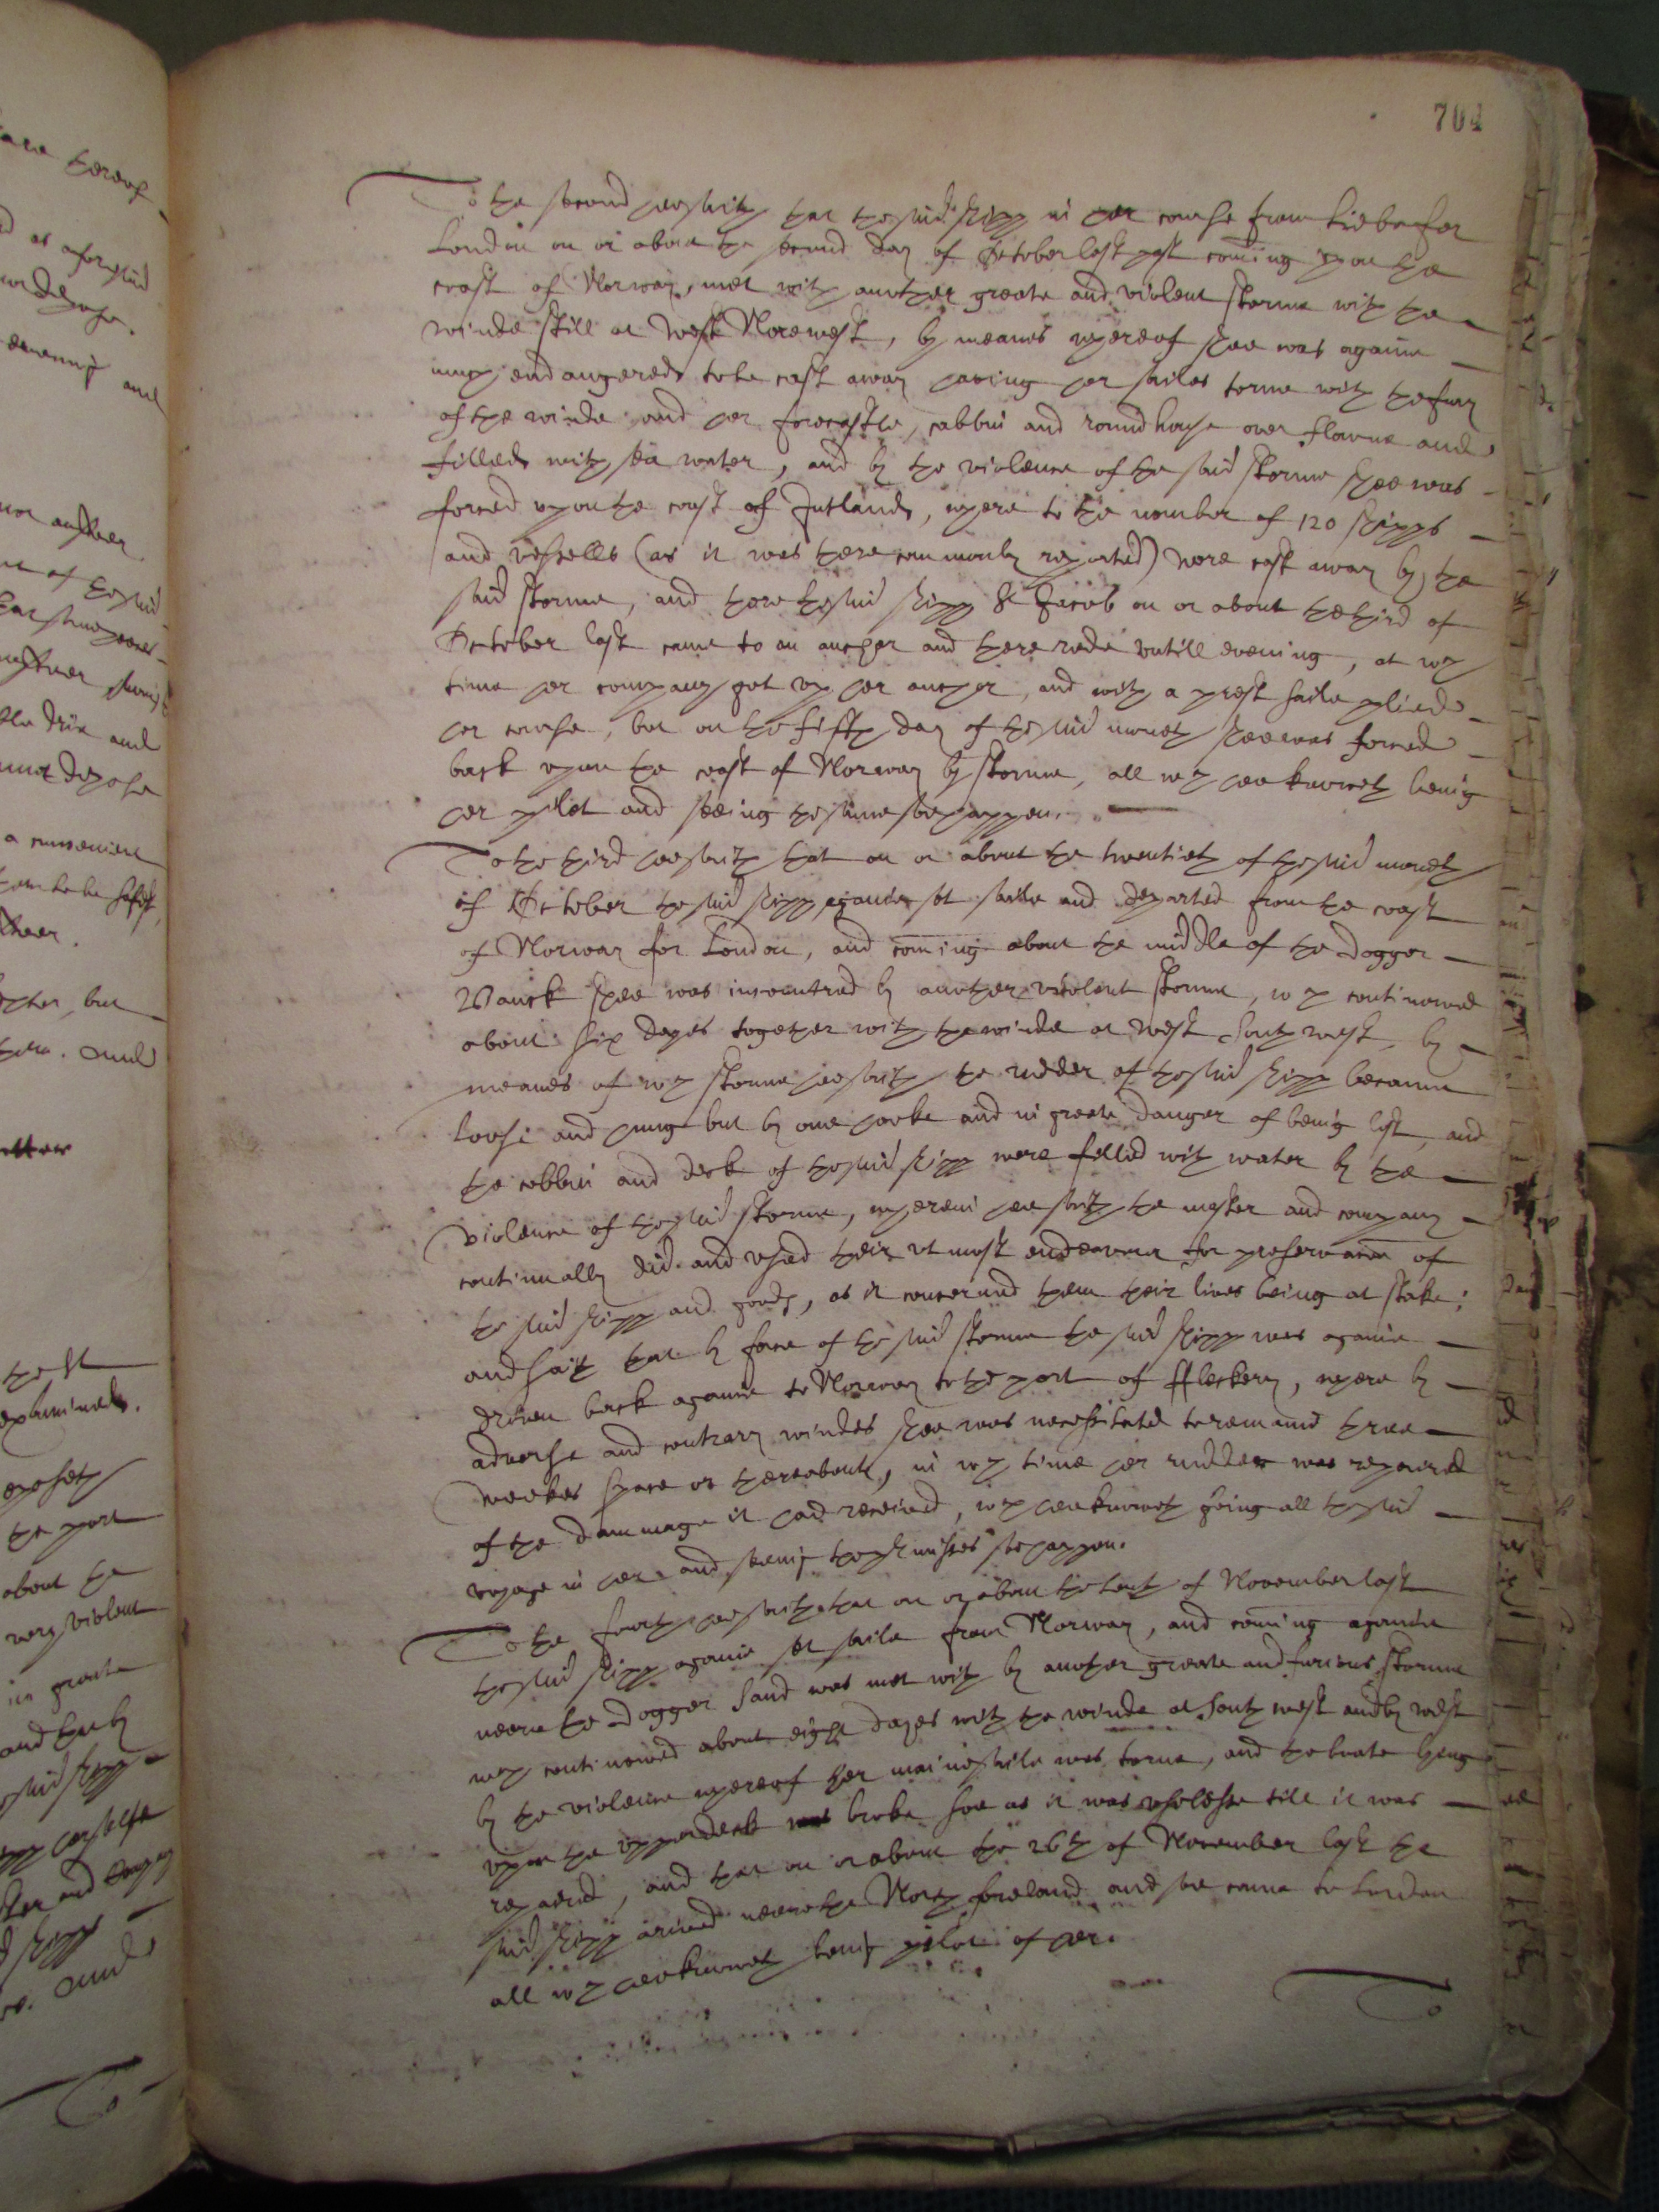 704
To the second hee saith that the said shipp in her course from Liebe for
London on or about the second day of October last past coming upon the
coast of Norway, met with another greate and violent storme with the
winde still at West Norewest, by meanes whereof shee was againe
much endangered to be cast away having her sailes torne with the fury
of the winde and her forecastle, cabbin and roundhouse over flowne and
filled with sea water, and by the violence of the said storme shee was
forced upon the coast of Jutland, where to the number of 120 shipps
and vessells (as it was there commonly reported) were cast away by the
said storme, and there the said shipp St Jacob on or about the third of
October last came to an anchor and there rode untill evening, at wch
time her company got up her anchor, and with a prest saile plied
her course, but on the fifth day of the said moneth shee was forced
back upon the coast of Norway by storme, all wch hee knoweth being
her pilot and seeing the same soe happen.
To the third hee saith that on or about the twentieth of the said moneth
of October the said shipp againe set saile and departed from the coast
of Norway for London, and coming about the middle of the Dogger
Banck shee was incountred by another violent storme, wch continowed
about six dayes together with the winde at West South west, by
meanes of wch storme hee saith the rudder of the said shipp became
loose and hung but by one hooke and in greate danger of being lost, and
the cabbin and deck of the said shipp were filled with water by the
violence of the said storme, wherein hee saith the master and company
continually did and used their utmost endeavour for preservacon of
the said shipp and goods, as it concerned them their lives being at stake;
and saith that by force of the said storme the said shipp was againe
driven back againe to Norway to the port of Fleckery, where by
adverse and contrary windes shee was necessitated to remaine three
weekes space or thereabouts, in wch time her rudder was repaired
of the dammage it had received, wch hee knoweth going all the said
voyage in her and seeing the premisses soe happen.
To the fourth hee saith that on or about the tenth of November last
the said shipp againe set saile from Norway, and coming againe
neere the Dogger Sand was met with by another greate and furious storme
wch continowed about eight dayes with the winde at South west and by west
by the violence whereof her maine saile was torne, and the boate lyeing
upon the upperdeck was broke soe as it was uselesse till it was
repaired, and that on or about the 26th of November last the
said shipp arived neere the North foreland and soe came to London
all wch hee knoweth being pilot of her.
To